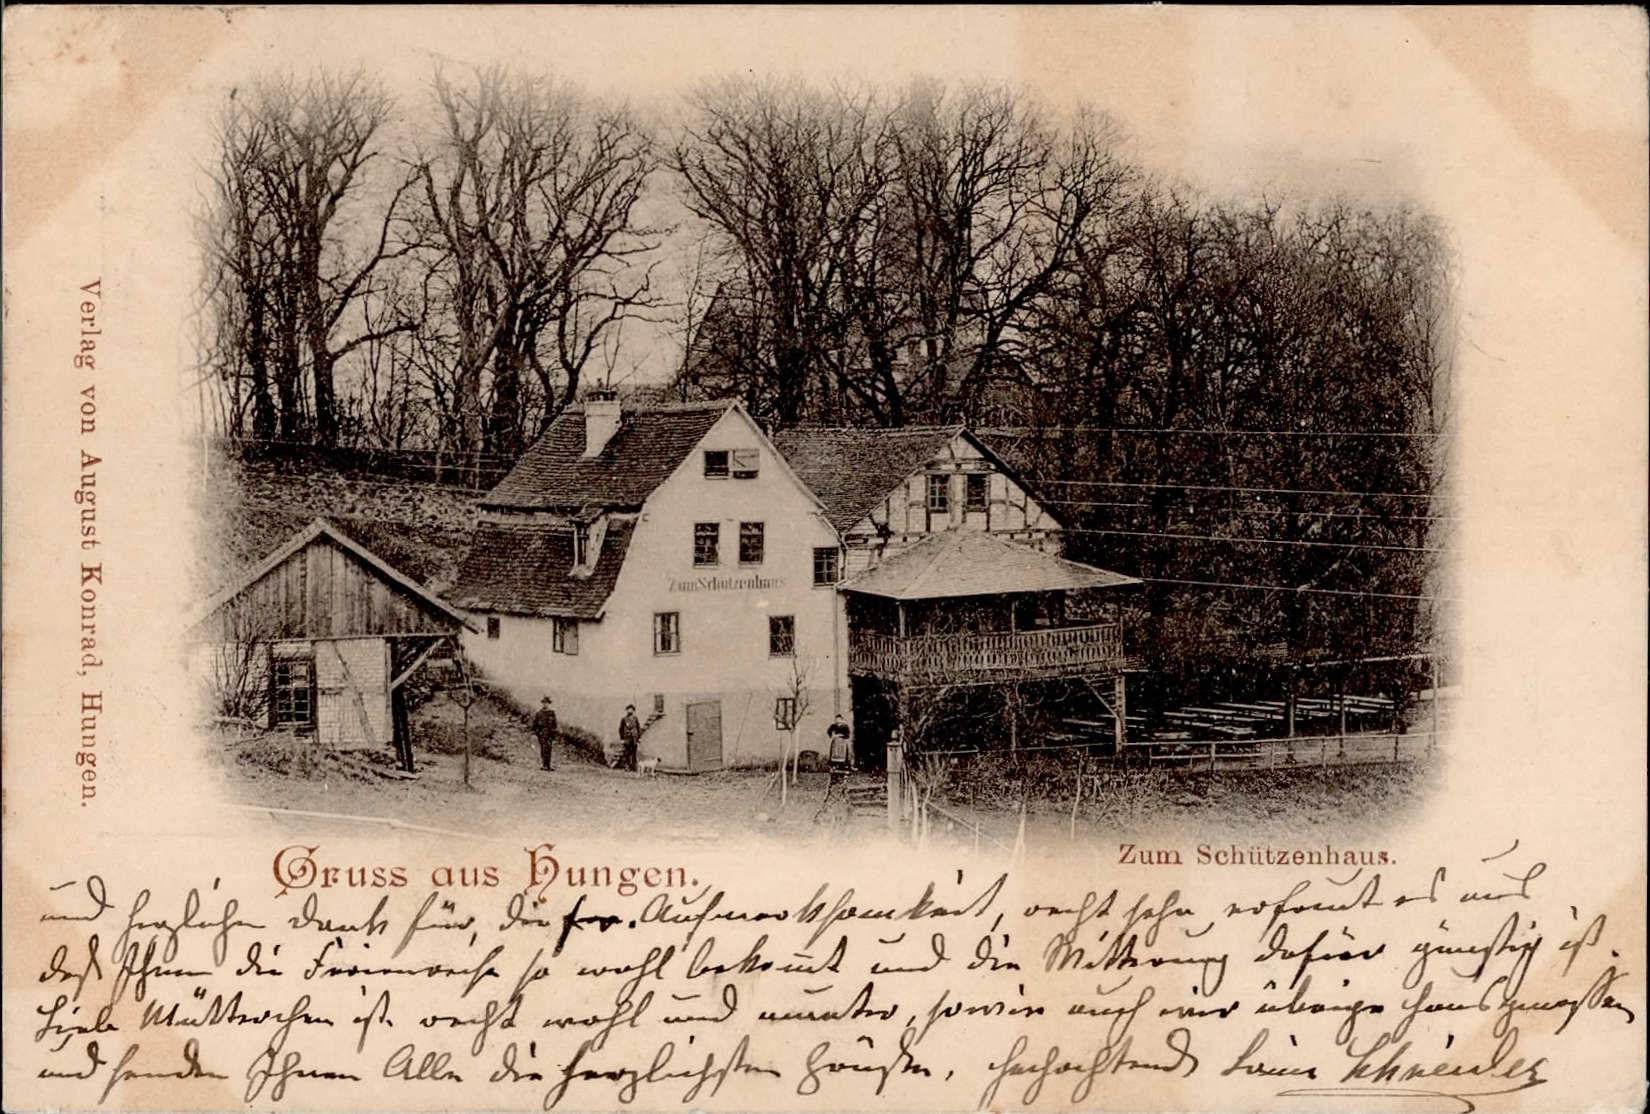 Zum Schützenhaus
Verlag von August Konrad, Hungen.
Gruss aus Hungen.
Zum Schützenhaus.
und herzlichen Dank für, die frd. Aufmerksamkeit, recht sehr erfreut es uns
daß Ihnen die Ferienreise so wohl bekommt und die Witterung dafür günstig ist.
Liebe Mütterchen ist recht wohl und munter, sowie auch wir übrige Hausgenossen
und senden Ihnen Alle die herzlichsten Grüße, hochachtend